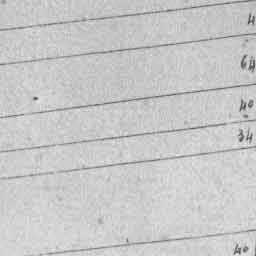 4
64
40
34
40